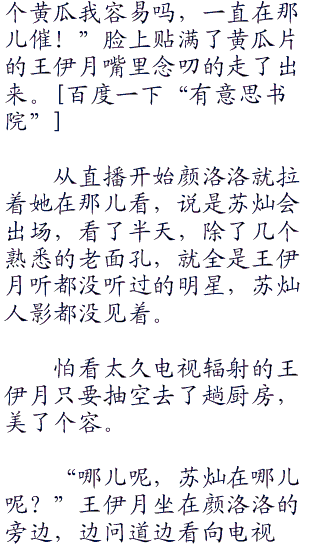 个黄瓜我容易吗，一直在那
儿催！”脸上贴满了黄瓜片
的王伊月嘴里念叨的走了出
来。[百度一下“有意思书
院”]
从直播开始颜洛洛就拉
着她在那儿看，说是苏灿会
出场，看了半天，除了几个
熟悉的老面孔，就全是王伊
月听都没听过的明星，苏灿
人影都没见着。
怕看太久电视辐射的王
伊月只要抽空去了趟厨房，
美了个容。
“哪儿呢，苏灿在哪儿
呢？”王伊月坐在颜洛洛的
旁边，边问道边看向电视